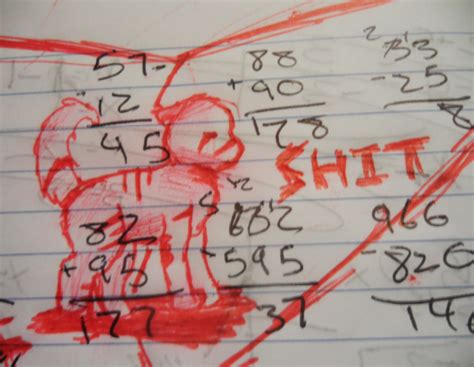 57- 88 33
12 +90 -25
45 178 8
SHIT
82 966
+95 -595 -820
177 37 146